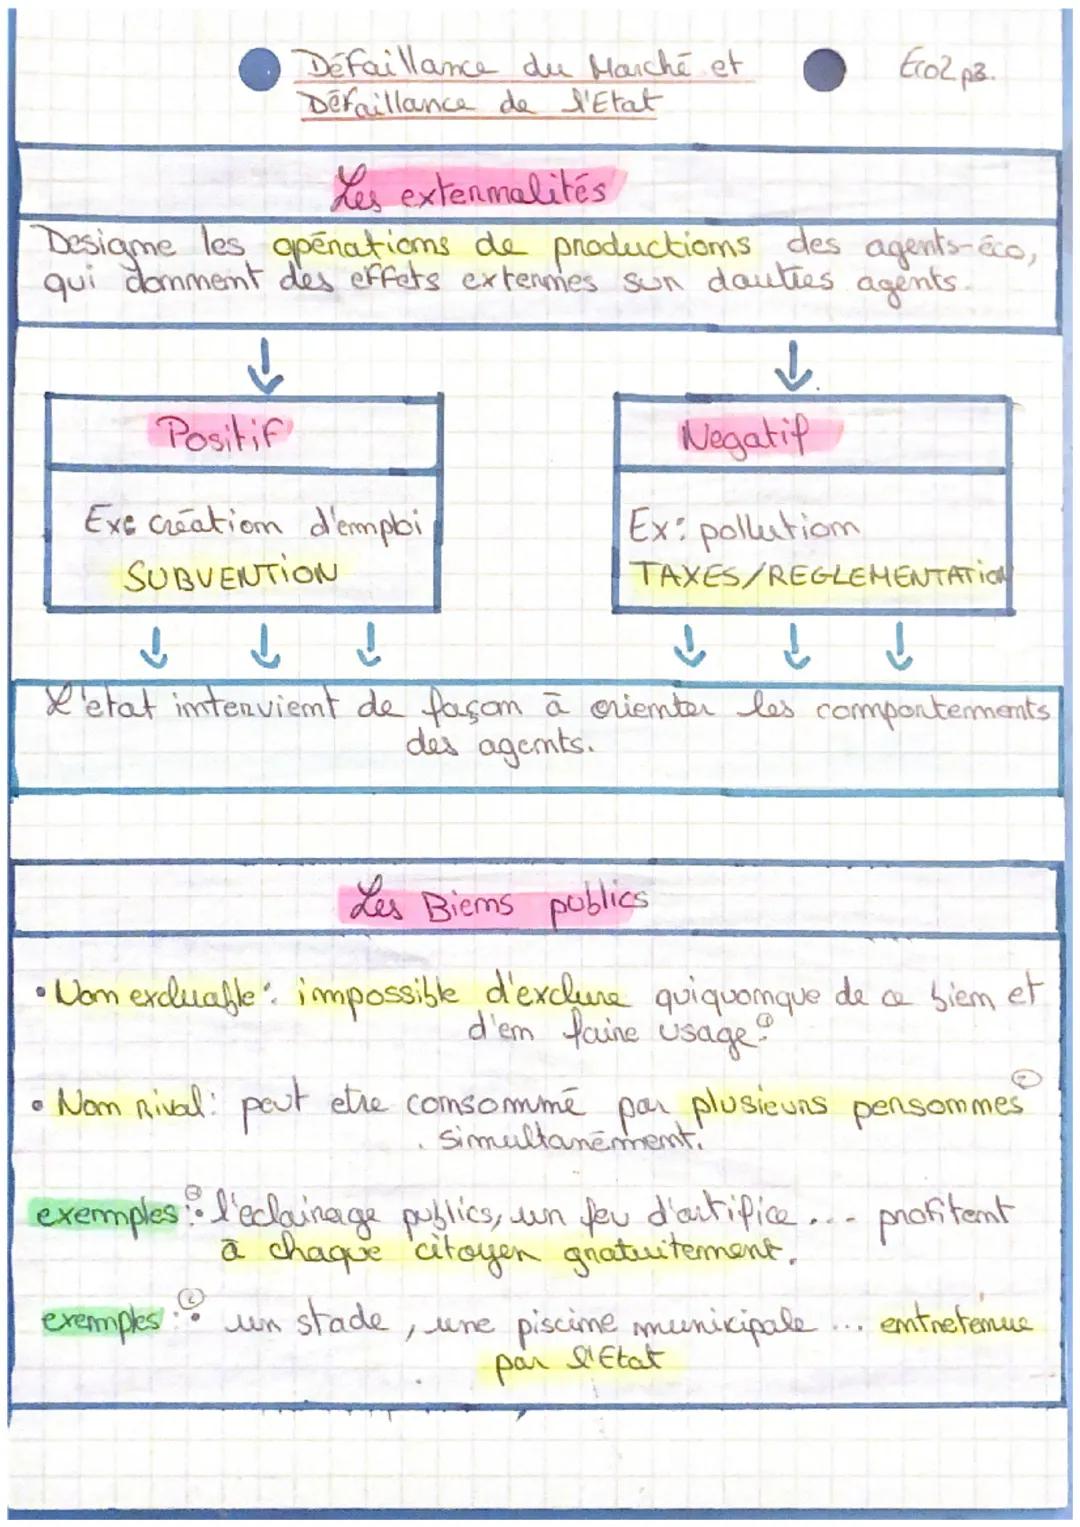 Défaillance du Marché et
Défaillance de l'Etat
Eco2 p3.
Les externalités
Designe les opérations de productions des agents-éco,
qui donnent des effets externes sur dautres agents.
Positif
Negatif
Ex: création d'emploi
SUBVENTION
Ex: pollution
TAXES/REGLEMENTATION
L'etat intervient de façon à orienter les comportements
des agents.
Les Biens publics
• Non excluable: impossible d'exclure quiquonque de ce bien et
d'en faire usage.
• Non rival: peut etre consommé par plusieurs personnes
simultanément.
exemples: • l'eclairage publics, un feu d'artifice ... profitent
à chaque citoyen gratuitement.
exemples: • un stade, une piscine municipale ... entretenue
par l'Etat